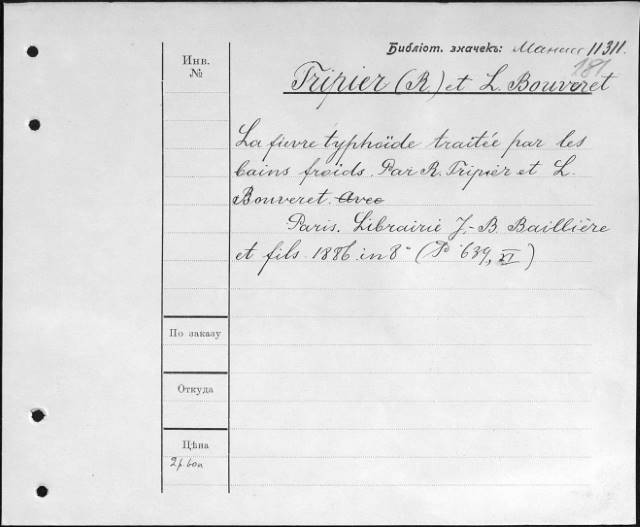 Библіот. значекъ: 11311.
181
Инв.
№
Tripier (R) et L. Bouveret
La fievre typhoïde traitée par les
bains froids. Par R. Tripier et L.
Bouveret. Avec
Paris. Librairie J.-B. Baillière
et fils. 1886. in 8° (P 639, XI)
По заказу
Откуда
Цѣна
2 р. 60 к